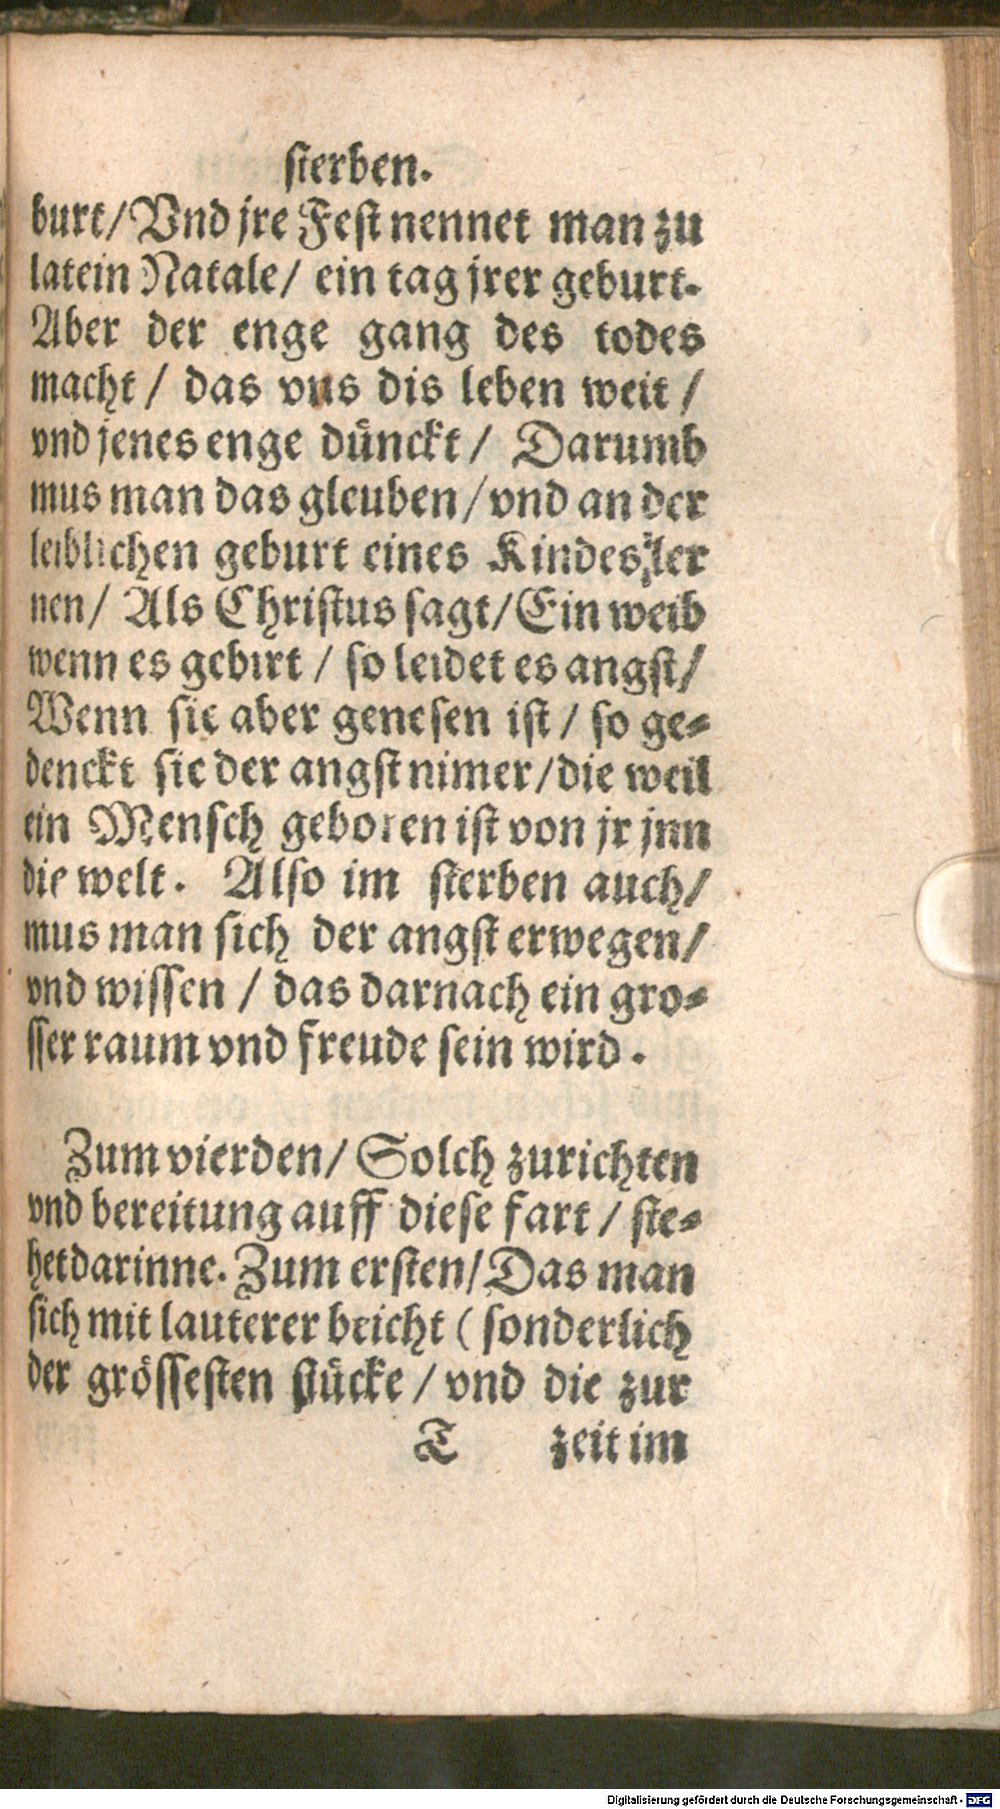 sterben.
burt/ Vnd jre Fest nennet man zu
latein Natale/ ein tag jrer geburt.
Aber der enge gang des todes
macht / das vns dis leben weit /
vnd jenes enge dünckt / Darumb
mus man das gleuben / vnd an der
leiblichen geburt eines Kindes ler
nen/ Als Christus sagt/ Ein weib
wenn es gebirt / so leidet es angst/
Wenn sie aber genesen ist / so ge-
denckt sie der angst nimer / die weil
ein Mensch geboren ist von jr jnn
die welt. Also im sterben auch/
mus man sich der angst erwegen/
vnd wissen / das darnach ein gro-
sser raum vnd freude sein wird.
Zum vierden/ Solch zurichten
vnd bereitung auff diese fart / ste-
het darinne. Zum ersten/ Das man
sich mit lauterer beicht ( sonderlich
der grössesten stücke / vnd die zur
T zeit im
Digitalisierung gefördert durch die Deutsche Forschungsgemeinschaft - DFG